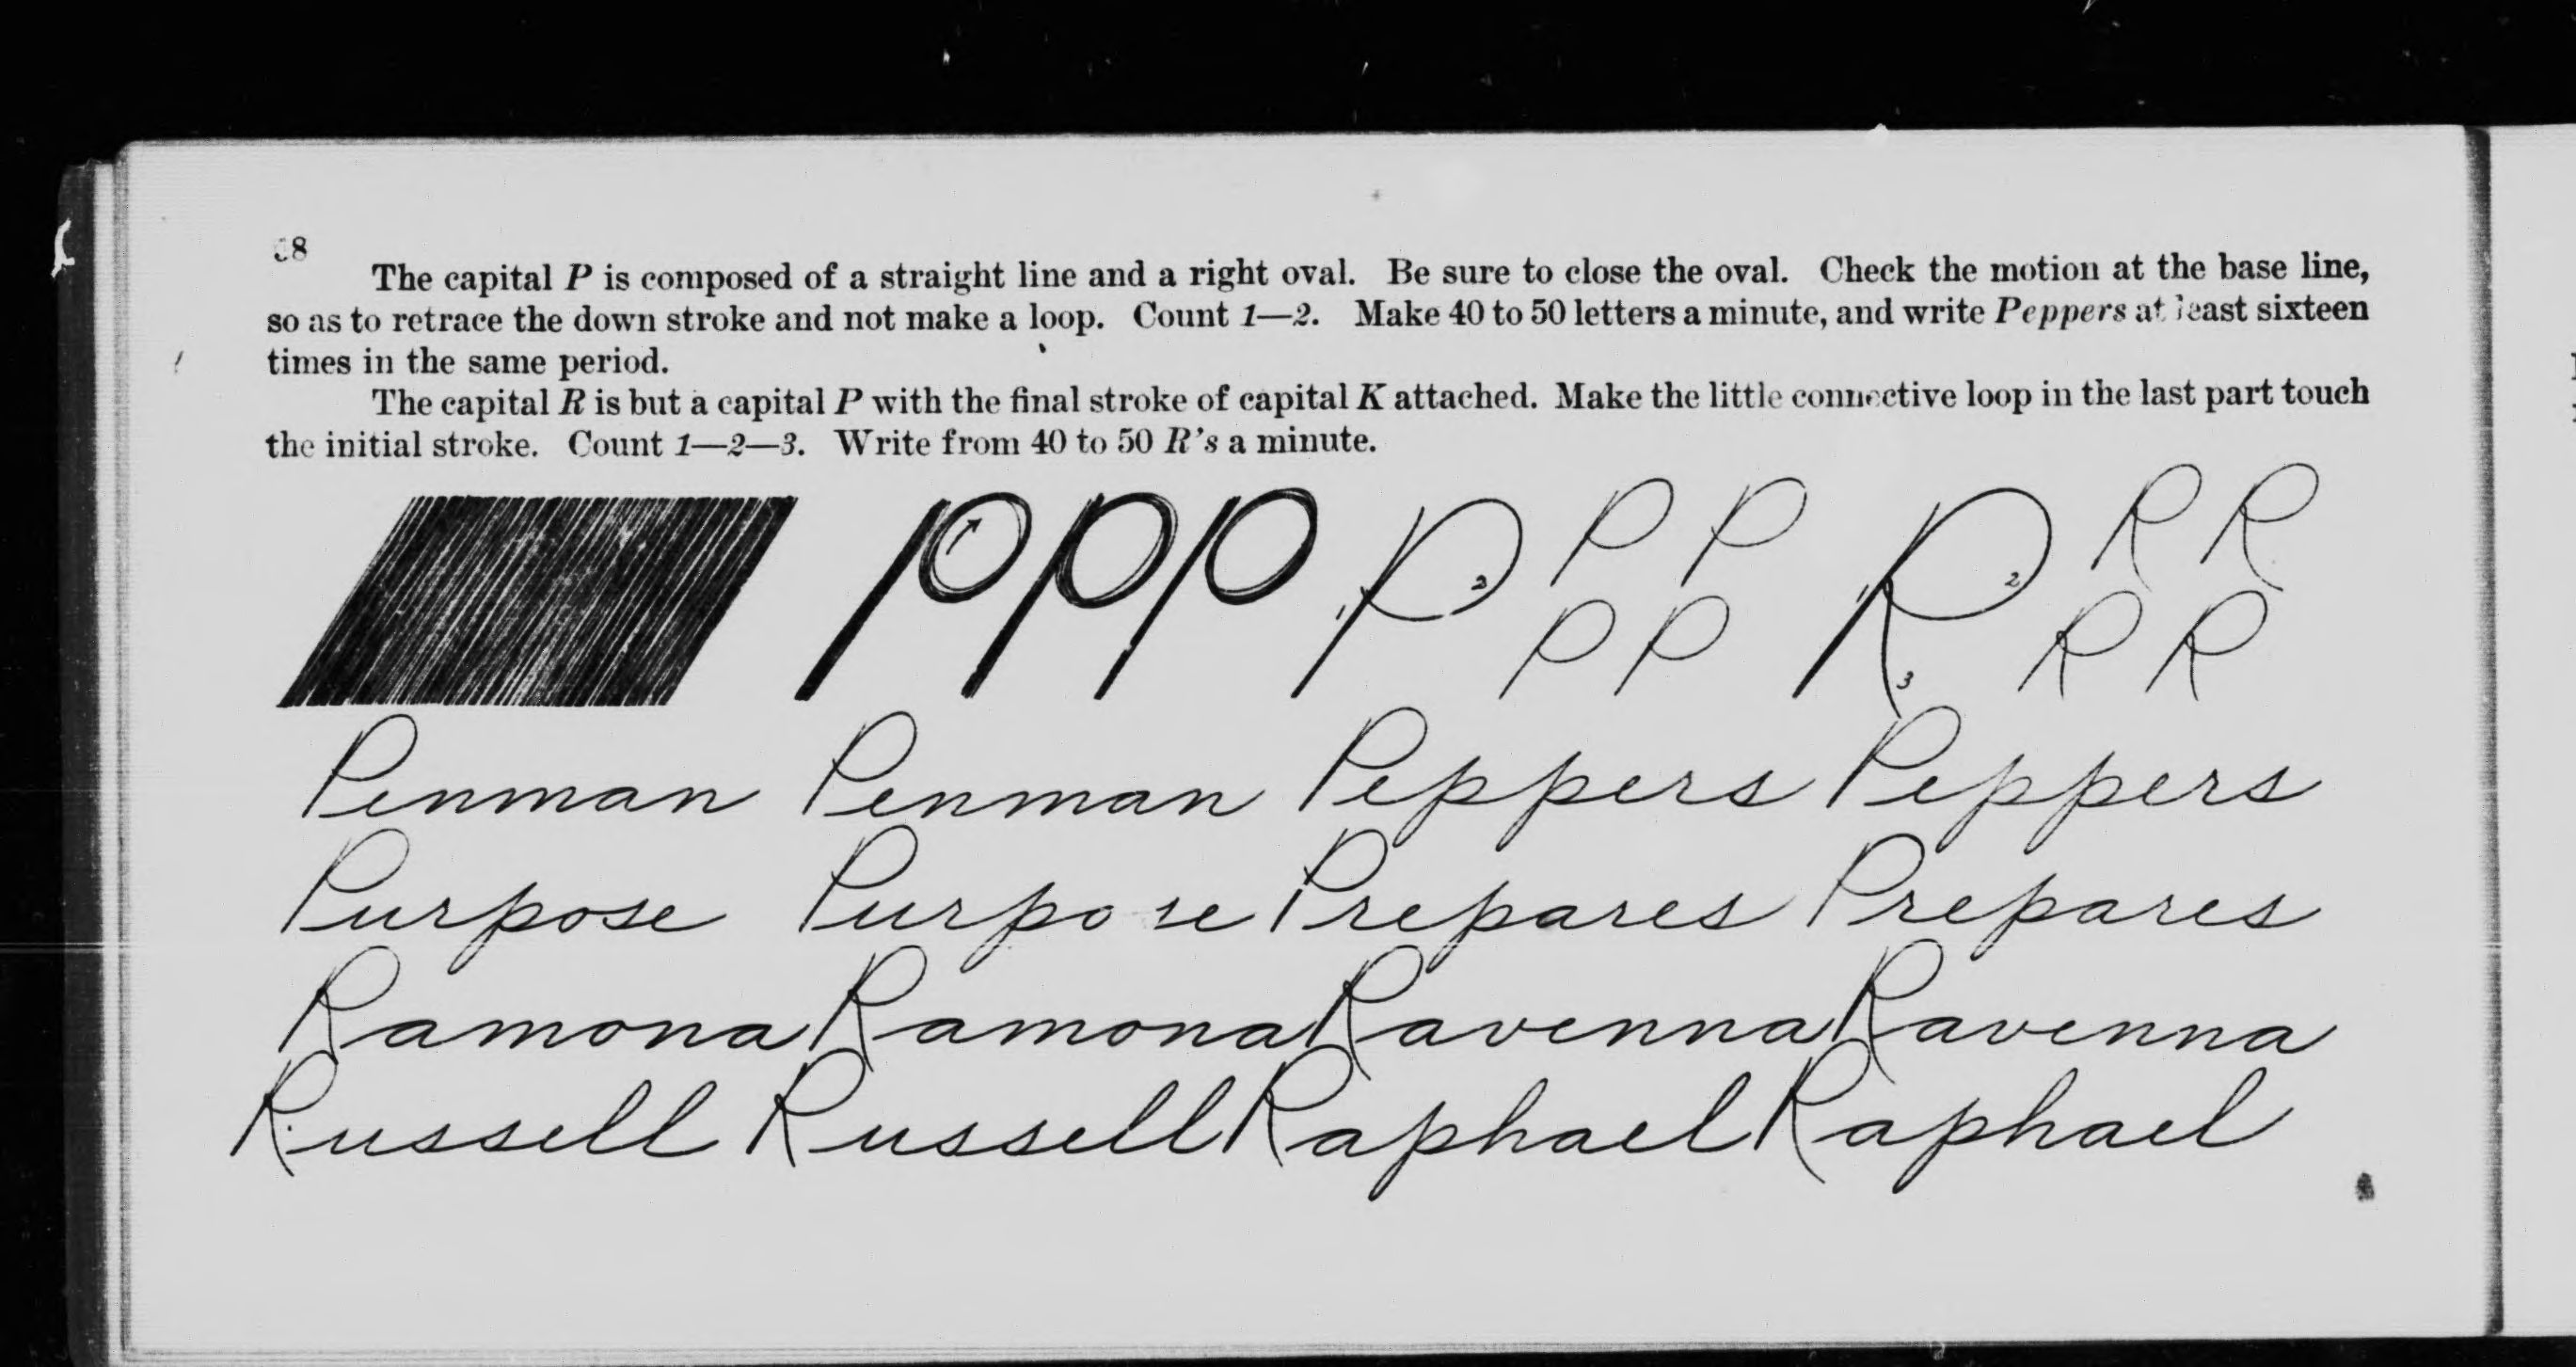 The capital P is composed of a straight line and a right oval. Be sure to close the oval. Check the motion at the base line,
so as to retrace the down stroke and not make a loop. Count 1—2. Make 40 to 50 letters a minute, and write Peppers at least sixteen
times in the same period.
The capital R is but a capital P with the final stroke of capital K attached. Make the little connective loop in the last part touch
the initial stroke. Count 1—2—3. Write from 40 to 50 R's a minute.
P P P P P P R R R
1 2 1 2 3
P P R R
Penman Penman Peppers Peppers
Purpose Purpose Prepares Prepares
Ramona Ramona Ravenna Ravenna
Russell Russell Raphael Raphael